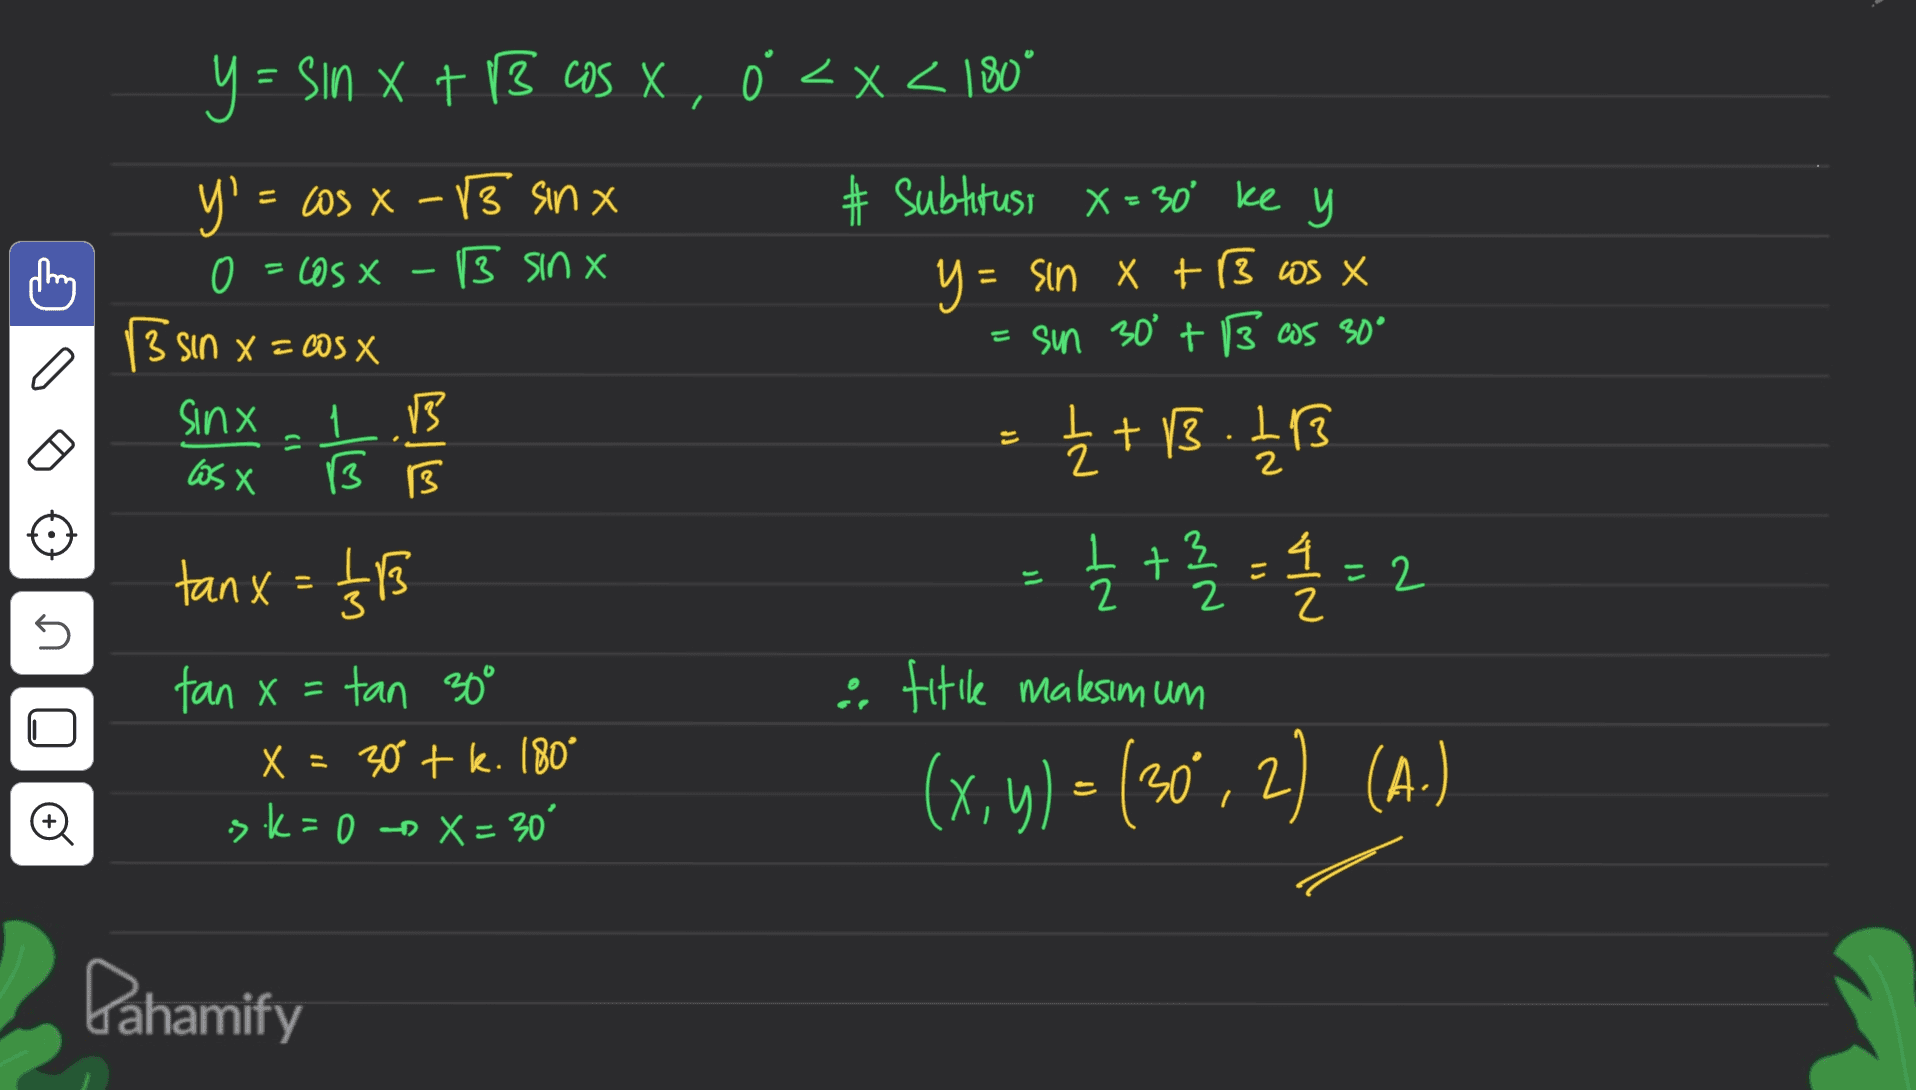 y = sin x + √3 cos x , 0° < x < 180°
y' = cos x - √3 sin x
0 = cos x - √3 sin x
√3 sin x = cos x
sin x / cos x = 1/√3 . √3/√3
tan x = 1/3 √3
tan x = tan 30°
x = 30° + k. 180°
> k = 0 → x = 30°
# Subtitusi x = 30° ke y
y = sin x + √3 cos x
= sin 30° + √3 cos 30°
= 1/2 + √3 . 1/2 √3
= 1/2 + 3/2 = 4/2 = 2
∴ titik maksimum
(x, y) = (30°, 2) (A.)
Pahamify